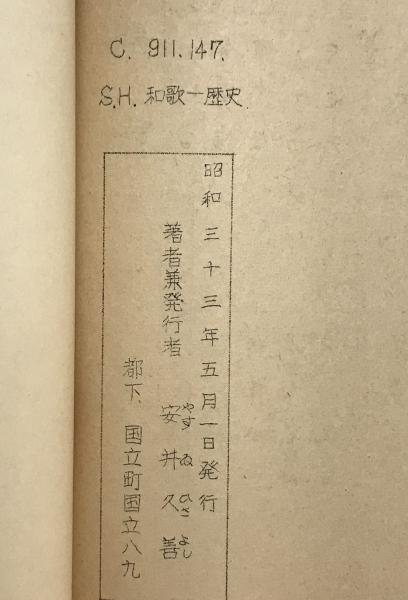 C. 911.147.
S.H. 和歌―歴史
昭和三十三年五月一日発行
著者兼発行者 安井久善
やす ゐ ひさ よし
都下、国立町国立八九